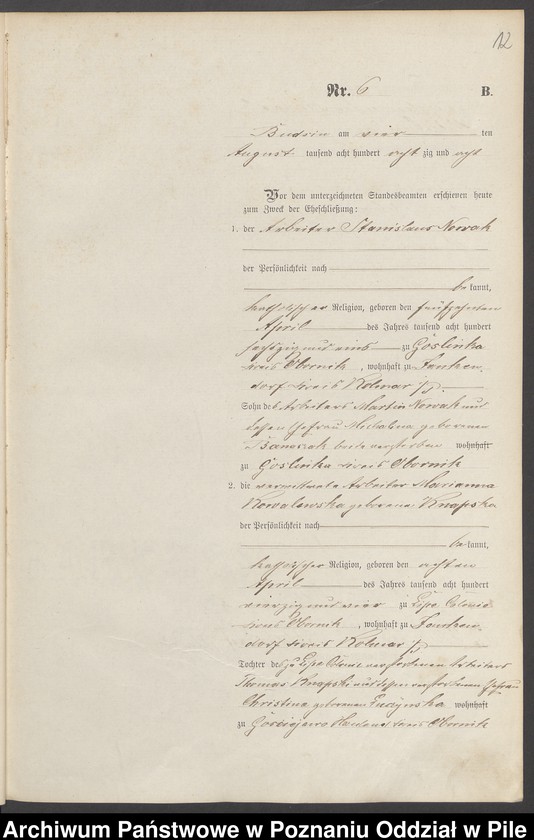 12
Nr. 6 B.
Budsin am vier ten
August tausend acht hundert acht zig und acht
Vor dem unterzeichneten Standesbeamten erschienen heute
zum Zweck der Eheschließung:
1. der Arbeiter Stanislaus Nowak
der Persönlichkeit nach
be kannt,
katholischer Religion, geboren den fünfzehnten
April des Jahres tausend acht hundert
sechszig und eins zu Goslinka
Kreis Obornik, wohnhaft zu Janken
dorf Kreis Kolmar i/P.
Sohn des Arbeiters Martin Nowak und
dessen Ehefrau Michalina geborenen
beide verstorben wohnhaft
zu Goslinka Kreis Obornik
2. die verwittwete Arbeiter Marianna
Kowalewska geborene Knapska
der Persönlichkeit nach
be kannt,
katholischer Religion, geboren den achten
April des Jahres tausend acht hundert
vierzig und vier zu Lipe Colonie
Kreis Obornik, wohnhaft zu Janken
dorf Kreis Kolmar i/P
Tochter des zu Lipe Colonie verstorbenen Arbeiters
Thomas Knapski und dessen verstorbenen Ehefrau
Christina geborenen wohnhaft
zu Hauland Kreis Obornik
Archiwum Państwowe w Poznaniu Oddział w Pile